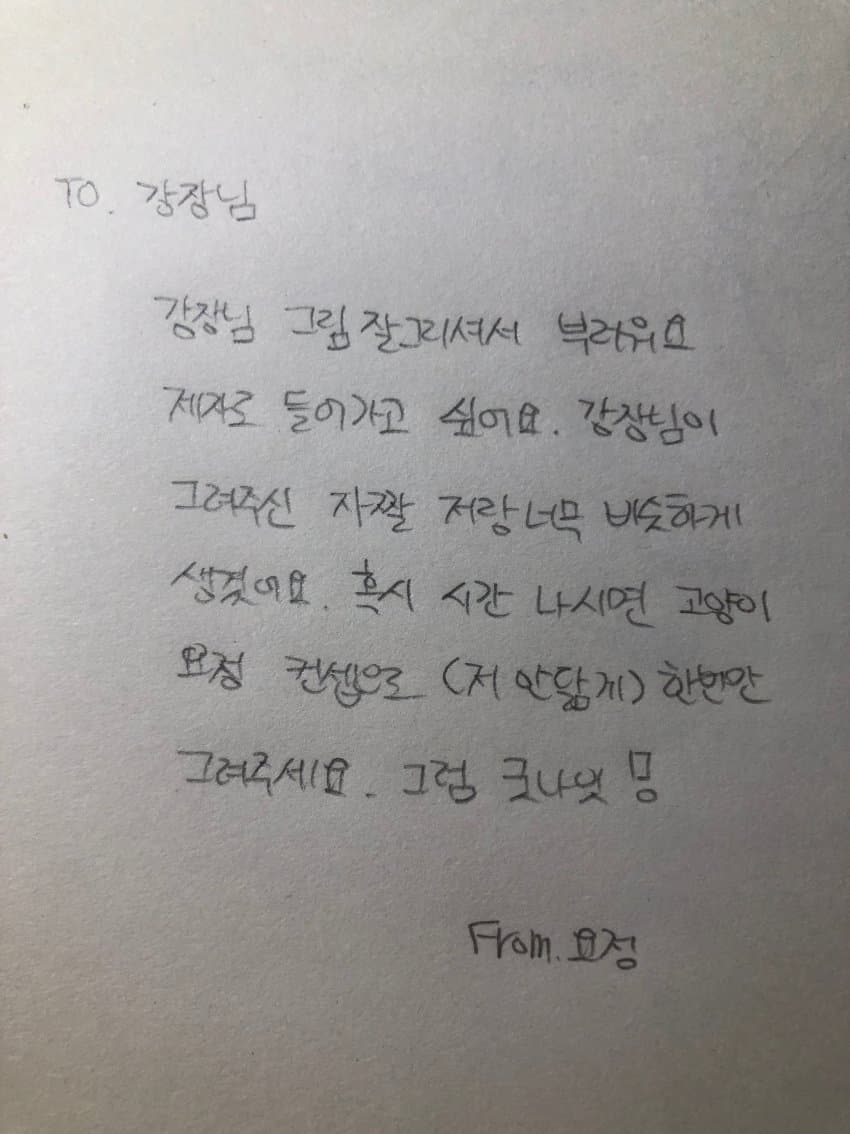 TO. 강장님
강장님 그림 잘그리셔서 부러워요
제자로 들어가고 싶어요. 강장님이
그려주신 자짤 저랑 너무 비슷하게
생겼어요. 혹시 시간 나시면 고양이
요정 컨셉으로 (저 안닮게) 한번만
그려주세요. 그럼 굿나잇 뭉
From. 요정